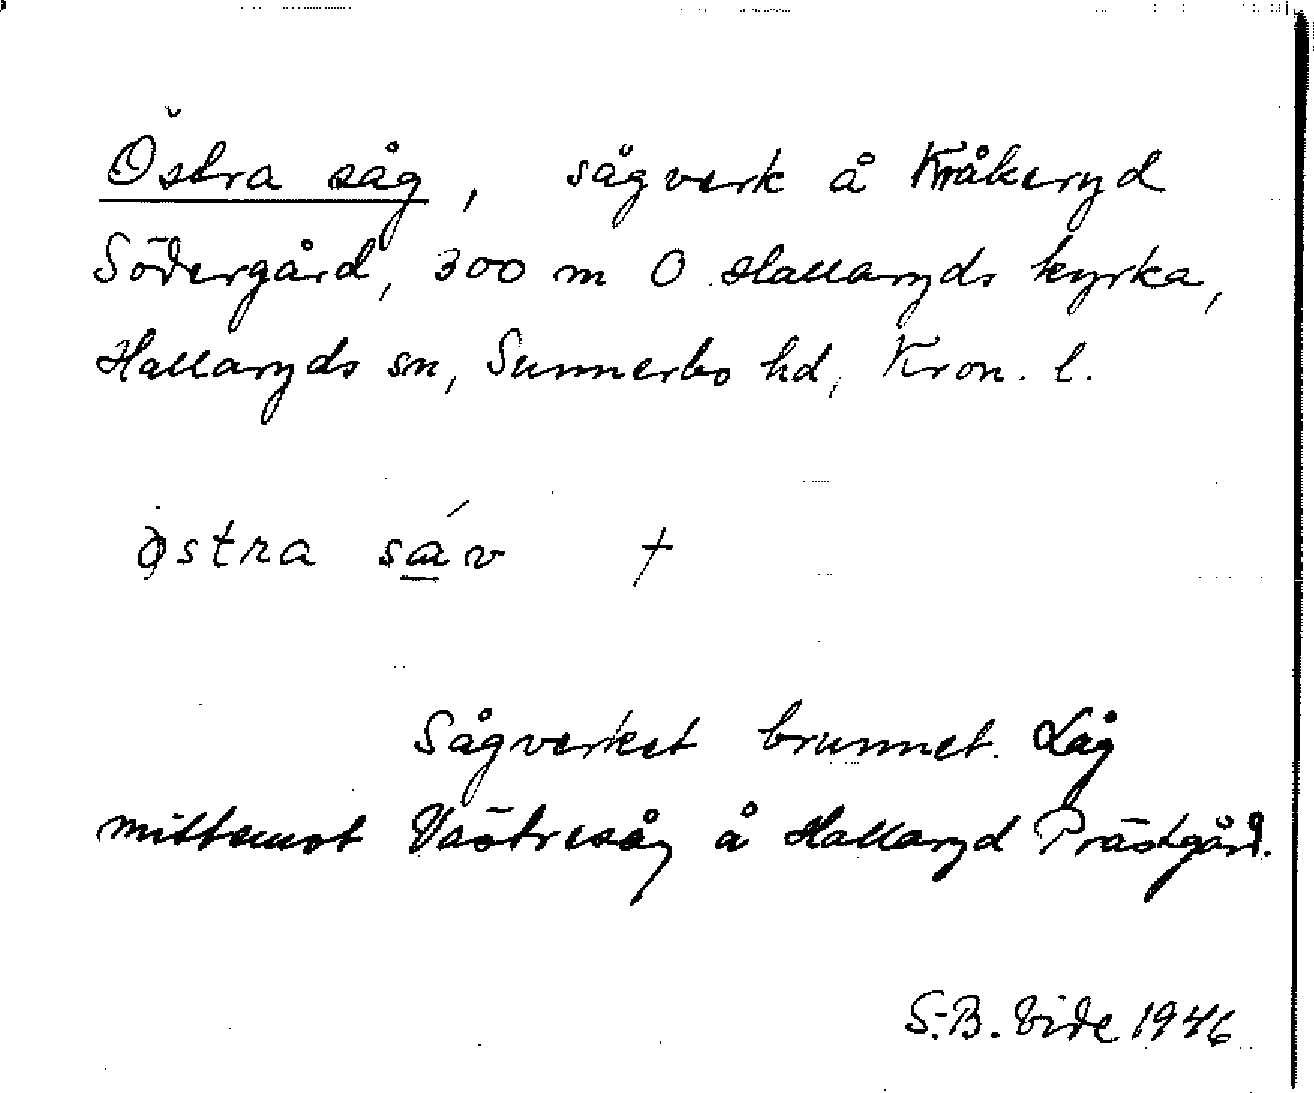 Östra såg, sågverk å Kråkeryd
Södergård, 300 m O Hallaryds kyrka,
Hallaryds sn, Sunnerbo hd, Kron. l.
östra sáv +
Sågverket brunnet. Låg
mittemot Västresåg å Hallaryd Prästgård.
S.-B. Vide 1946